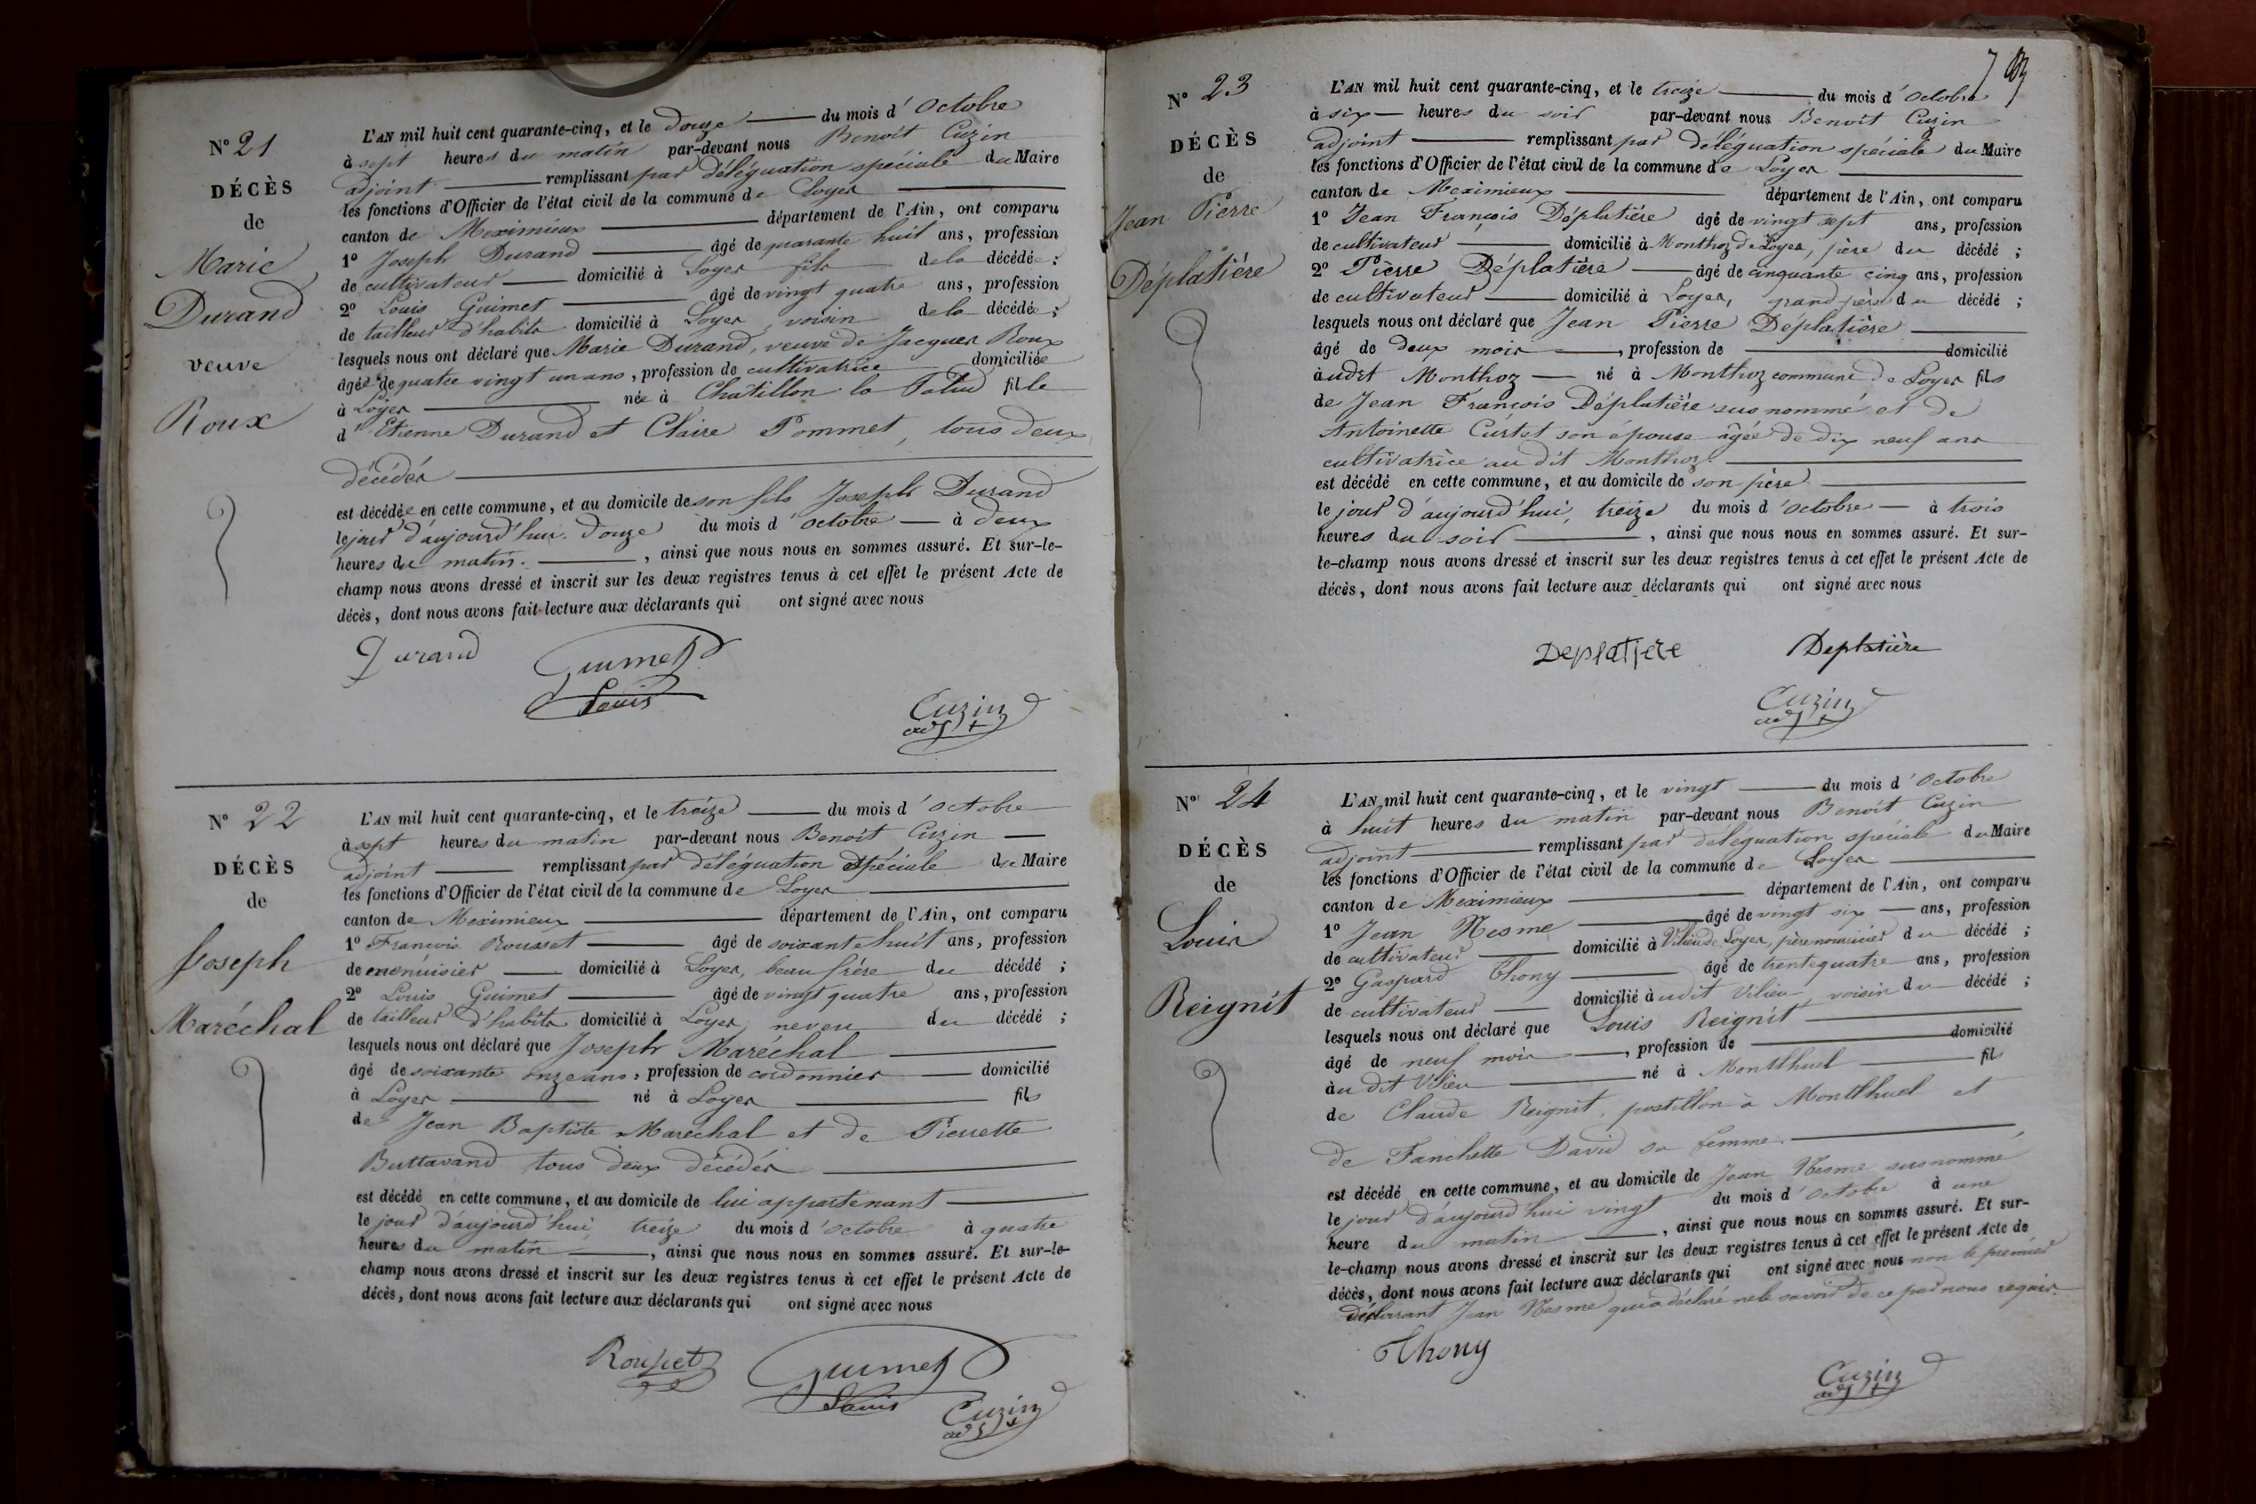 N° 21
DÉCÈS
de
Marie
Durand
veuve
Roux
L'AN mil huit cent quarante-cinq, et le douze du mois d'Octobre
à sept heures du matin par-devant nous Benoît Cuzin
adjoint remplissant par déléguation spéciale du Maire
les fonctions d'Officier de l'état civil de la commune de Loyes
canton de Meximieux département de l'Ain, ont comparu
1° Joseph Durand âgé de quarante huit ans, profession
de cultivateur domicilié à Loyes fils de la décédée ;
2° Louis Guimet âgé de vingt quatre ans, profession
de tailleur d'habits domicilié à Loyes, voisin de la décédée ;
lesquels nous ont déclaré que Marie Durand, veuve de Jacques Roux
âgée de quatre vingt un ans, profession de cultivatrice domiciliée
à Loyes née à Châtillon la Palud fille
d'Etienne Durand et Claire Pommet, tous deux
décédés
est décédée en cette commune, et au domicile de son fils Joseph Durand
le jour d'aujourd'hui douze du mois d'octobre à deux
heures du matin, ainsi que nous nous en sommes assuré. Et sur-le-
champ nous avons dressé et inscrit sur les deux registres tenus à cet effet le présent Acte de
décès, dont nous avons fait lecture aux déclarants qui ont signé avec nous
Durand
Guimet
Louis
Cuzin
adjt
N° 22
DÉCÈS
de
Joseph
Maréchal
L'AN mil huit cent quarante-cinq, et le treize du mois d'octobre
à sept heures du matin par-devant nous Benoît Cuzin
adjoint remplissant par déléguation spéciale de Maire
les fonctions d'Officier de l'état civil de la commune de Loyes
canton de Meximieux département de l'Ain, ont comparu
1° François Rousset âgé de soixante huit ans, profession
de menuisier domicilié à Loyes, beau frère du décédé ;
2° Louis Guimet âgé de vingt quatre ans, profession
de tailleur d'habits domicilié à Loyes, neveu du décédé ;
lesquels nous ont déclaré que Joseph Maréchal
âgé de soixante onze ans, profession de cordonnier domicilié
à Loyes né à Loyes fils
de Jean Baptiste Maréchal et de Pierrette
Buttavand tous deux décédés
est décédé en cette commune, et au domicile de lui appartenant
le jour d'aujourd'hui, treize du mois d'octobre à quatre
heures du matin, ainsi que nous nous en sommes assuré. Et sur-le-
champ nous avons dressé et inscrit sur les deux registres tenus à cet effet le présent Acte de
décès, dont nous avons fait lecture aux déclarants qui ont signé avec nous
Rousset
Guimet
Louis
Cuzin
adjt
N° 23
DÉCÈS
de
Jean Pierre
Déplatière
L'AN mil huit cent quarante-cinq, et le treize du mois d'octobre
à six heures du soir par-devant nous Benoît Cuzin
adjoint remplissant par déléguation spéciale du Maire
les fonctions d'Officier de l'état civil de la commune de Loyes
canton de Meximieux département de l'Ain, ont comparu
1° Jean François Déplatière âgé de vingt sept ans, profession
de cultivateur domicilié à Monthoz de Loyes, père du décédé ;
2° Pierre Déplatière âgé de cinquante cinq ans, profession
de cultivateur domicilié à Loyes, grand père du décédé ;
lesquels nous ont déclaré que Jean Pierre Déplatière
âgé de deux mois, profession de domicilié
audit Monthoz né à Monthoz commune de Loyes fils
de Jean François Déplatière susnommé et de
Antoinette Curtet son épouse âgée de dix neuf ans
cultivatrice au dit Monthoz
est décédé en cette commune, et au domicile de son père
le jour d'aujourd'hui, treize du mois d'octobre à trois
heures du soir, ainsi que nous nous en sommes assuré. Et sur-
le-champ nous avons dressé et inscrit sur les deux registres tenus à cet effet le présent Acte de
décès, dont nous avons fait lecture aux déclarants qui ont signé avec nous
Deplatiere Deplatière
Cuzin
adjt
N° 24
DÉCÈS
de
Louis
Reignit
L'AN mil huit cent quarante-cinq, et le vingt du mois d'octobre
à huit heures du matin par-devant nous Benoît Cuzin
adjoint remplissant par déléguation spéciale du Maire
les fonctions d'Officier de l'état civil de la commune de Loyes
canton de Meximieux département de l'Ain, ont comparu
1° Jean Nesme âgé de vingt six ans, profession
de cultivateur domicilié à Vilieu de Loyes, père nourricier du décédé ;
2° Gaspard Thony âgé de trente quatre ans, profession
de cultivateur domicilié audit Vilieu, voisin du décédé ;
lesquels nous ont déclaré que Louis Reignit
âgé de neuf mois, profession de domicilié
au dit Vilieu né à Montlhuel fils
de Claude Reignit, postillon à Montlhuel et
de Fanchette David sa femme
est décédé en cette commune, et au domicile de Jean Nesme susnommé
le jour d'aujourd'hui vingt du mois d'octobre à une
heure du matin, ainsi que nous nous en sommes assuré. Et sur-
le-champ nous avons dressé et inscrit sur les deux registres tenus à cet effet le présent Acte de
décès, dont nous avons fait lecture aux déclarants qui ont signé avec nous non le premier
déclarant Jean Nesme qui a déclaré ne le savoir de ce par nous requis
Thony
Cuzin
adjt